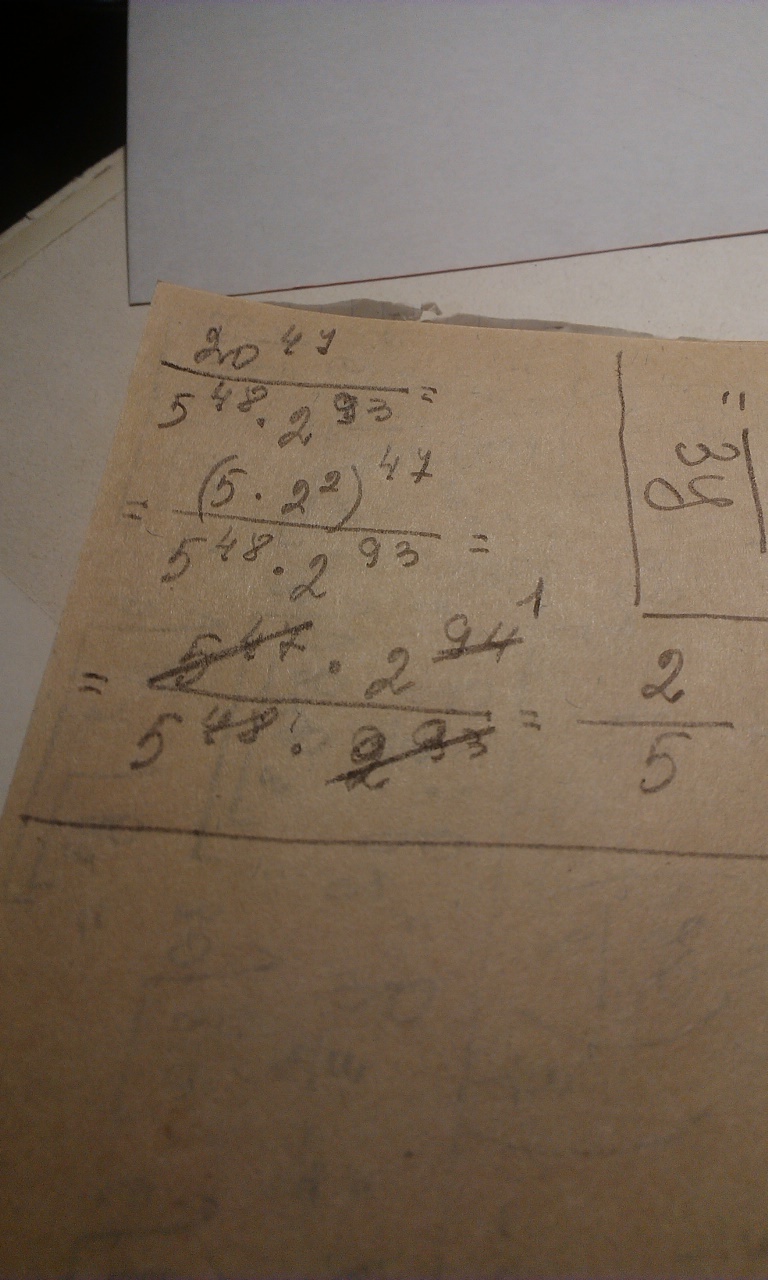 20^47
5^48 · 2^93 =
= (5 · 2^2)^47
5^48 · 2^93 =
= 5^47 · 2^94 1
5^48 · 2^93 = 2
5
3y
=